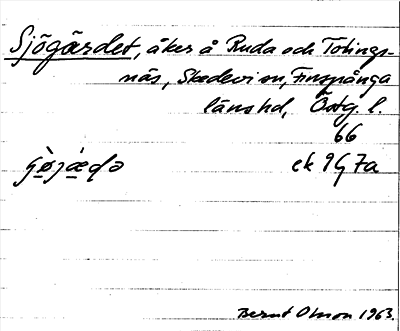 Sjögärdet, åker å Ruda och Totings-
näs, Skedevi sn, Finspånga
länshd, Östg. l.
66
ek 9G 7a
Bernt Olsson 1963.